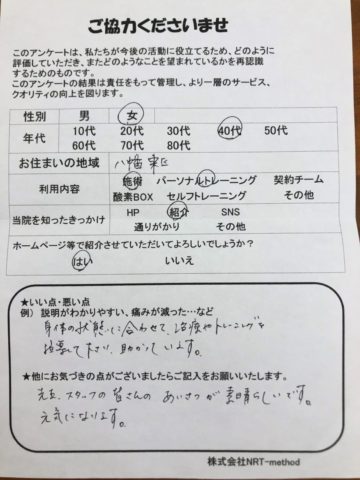 ご協力くださいませ
このアンケートは、私たちが今後の活動に役立てるため、どのように
評価していただき、またどのようなことを望まれているかを再認識
するためのものです。
このアンケートの結果は責任をもって管理し、より一層のサービス、
クオリティの向上を図ります。
性別 男 女
年代 10代 20代 30代 40代 50代
60代 70代 80代
お住まいの地域 八幡東区
利用内容 施術 パーソナルトレーニング 契約チーム
酸素BOX セルフトレーニング その他
当院を知ったきっかけ HP 紹介 SNS
通りがかり その他
ホームページ等で紹介させていただいてよろしいでしょうか?
はい いいえ
★いい点・悪い点
例) 説明がわかりやすい、痛みが減った…など
身体の状態に合わせて、治療やトレーニングを
提案して下さり、助かっています。
★他にお気づきの点がございましたらご記入をお願いいたします。
先生、スタッフの皆さんの あいさつが 素晴らしいです。
元気になります。
株式会社NRT-method